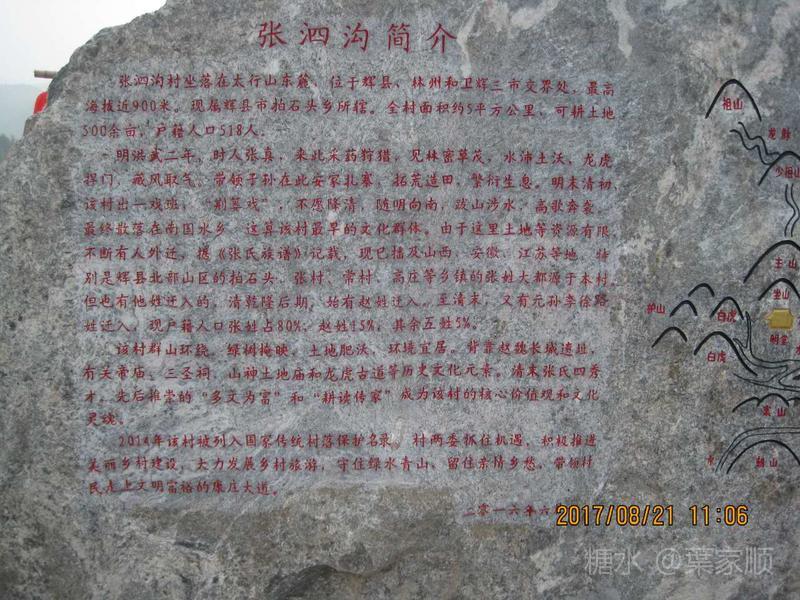 张泗沟简介
张泗沟村坐落在太行山东麓，位于辉县、林州和卫辉三市交界处，最高
海拔近900米。现属辉县市拍石头乡所辖。全村面积约5平方公里，可耕土地
500余亩，户籍人口518人。
明洪武二年，时人张真，来此采药狩猎，见林密草茂，水沛土沃，龙虎
捍门，藏风取气。带领子孙在此安家扎寨，拓荒造田，繁衍生息。明末清初，
该村出一戏班，"荆算戏"，不愿降清，随明向南，跋山涉水，高歌奔袭，
最终散落在南国水乡，这算该村最早的文化群体。由于这里土地等资源有限
不断有人外迁，据《张氏族谱》记载，现已播及山西、安徽、江苏等地，特
别是辉县北部山区的拍石头、张村、常村、高庄等乡镇的张姓大都源于本村，
但也有他姓迁入的。清乾隆后期，始有赵姓迁入，至清末，又有元孙李徐路
姓迁入，现户籍人口张姓占80%，赵姓15%，其余五姓5%。
该村群山环绕，绿树掩映，土地肥沃，环境宜居。背靠赵魏长城遗址，
有关帝庙、三圣祠、山神土地庙和龙虎古道等历史文化元素。清末张氏四秀
才，先后推崇的"多文为富"和"耕读传家"成为该村的核心价值观和文化
灵魂。
2014年该村被列入国家传统村落保护名录。村两委抓住机遇，积极推进
美丽乡村建设，大力发展乡村旅游，守住绿水青山，留住亲情乡愁，带领村
民走上文明富裕的康庄大道。
二零一六年六
祖山
龙脉
少祖山
主山
坐山
护山
白虎
明堂
白虎
案山
水
朝山
2017/08/21 11:06
糖水 @葉家顺